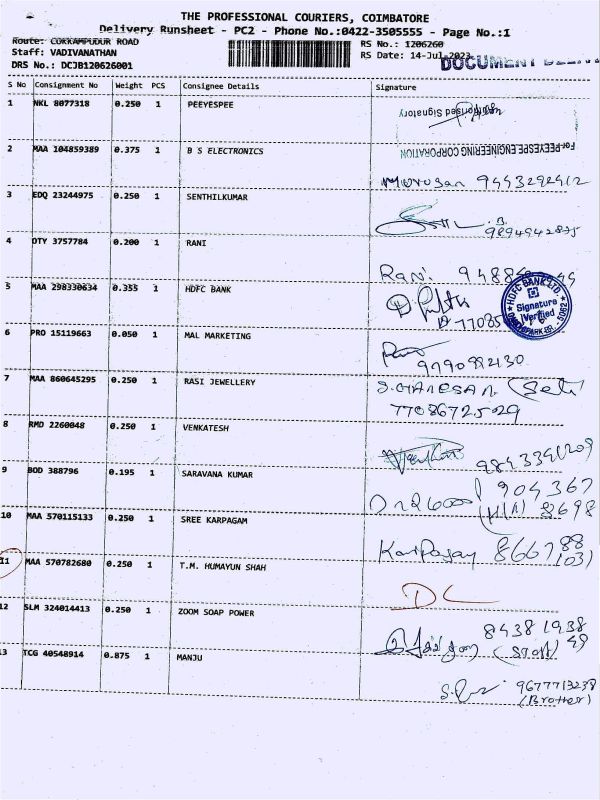 THE PROFESSIONAL COURIERS, COIMBATORE
Delivery Runsheet - PC2 - Phone No.:0422-3505555 - Page No.:1
Route: COKKAMPUDUR ROAD
RS No.: 1206260
Staff: VADIVANATHAN
RS Date: 14-Jul-2023
DRS No.: DCJB120626001
DOCUMENT
S No Consignment No Weight PCS Consignee Details Signature
1 NKL 8077318 0.250 1 PEEYESPEE
Authorised Signatory
For PEEYESPE ENGINEERING CORPORATION
2 MAA 104859389 0.375 1 B S ELECTRONICS
Murugan 9443292912
3 EDQ 23244975 0.250 1 SENTHILKUMAR
9894942875
4 OTY 3757784 0.200 1 RANI
Rani
5 MAA 298330634 0.355 1 HDFC BANK
HDFC BANK LTD
Signature
Verified
6 PRO 15119663 0.050 1 MAL MARKETING
9790892130
7 MAA 860645295 0.250 1 RASI JEWELLERY
S.GANESAN
77086725029
8 RMD 2260048 0.250 1 VENKATESH
9843341209
9 BOD 388796 0.195 1 SARAVANA KUMAR
904367
8698
10 MAA 570115133 0.250 1 SREE KARPAGAM
Karpagam 866788
1031
11 MAA 570782680 0.250 1 T.M. HUMAYUN SHAH
DL
12 SLM 324014413 0.250 1 ZOOM SOAP POWER
84381938
(Staff) 49
13 TCG 40548914 0.875 1 MANJU
9677713238
(Brother)